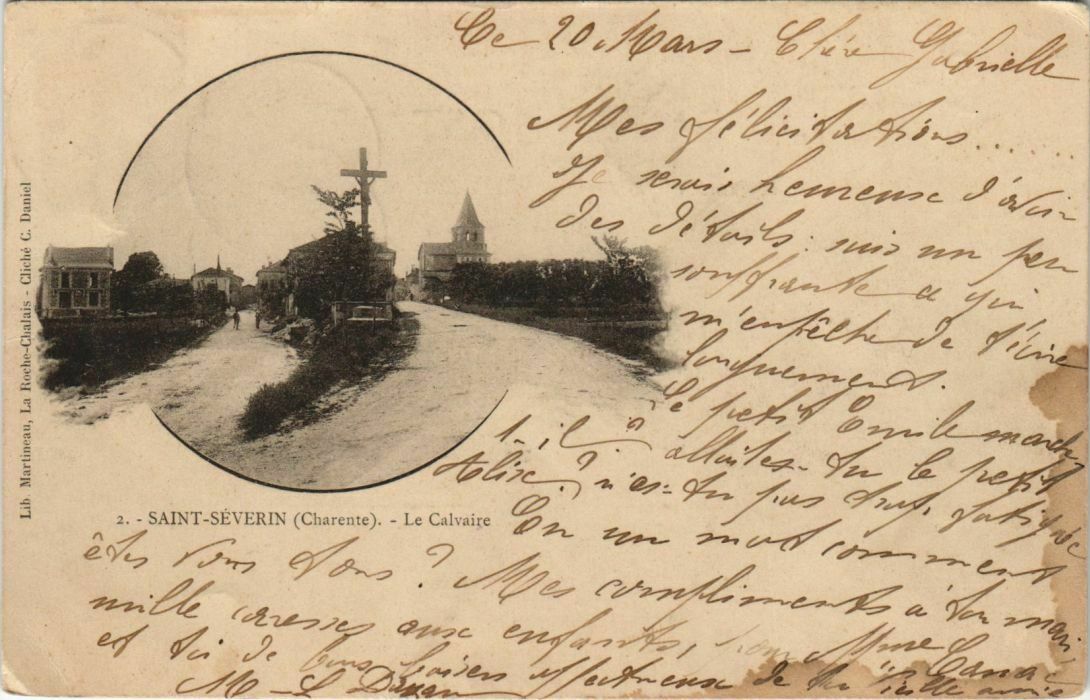 Ce 20 Mars - Chère Gabrielle
Mes félicitations......
Je serais heureuse d'avoir
des détails. suis un peu
souffrante ce qui
m'empêche de t'écrire
longuement.
Le petit Emile marche
t-il? allaites-tu le petit
n'es-tu pas trop fatiguée
En un mot comment
êtes vous tous? Mes compliments à ton mari,
mille caresses aux enfants,
et toi de bons baisers affectueux de
2. - SAINT-SÉVERIN (Charente). - Le Calvaire
Lib Martineau, La Roche-Chalais - Cliché C. Daniel